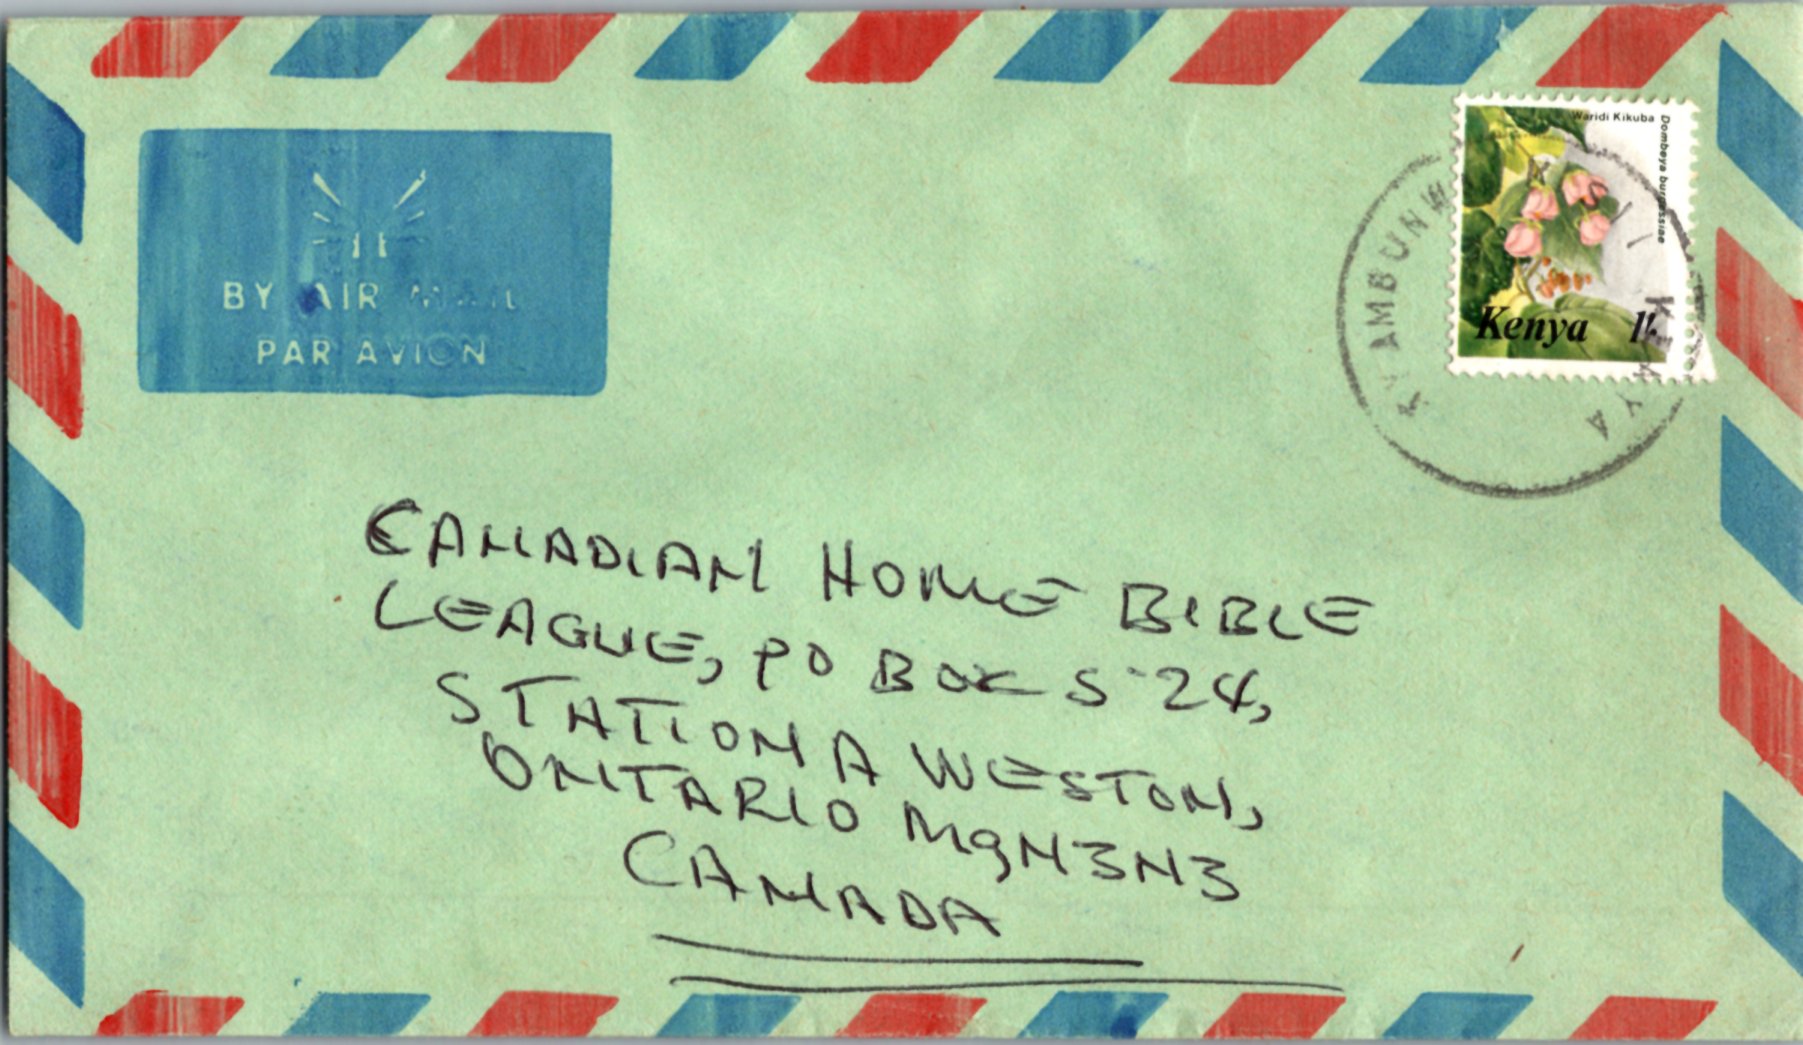 BY AIR MAIL
PAR AVION
Waridi Kikuba
Dombeya burgessiae
Kenya 1/-
KENYA
CANADIAN HOME BIBLE
LEAGUE, PO BOX 524,
STATION A WESTON,
ONTARIO M9N3N3
CANADA